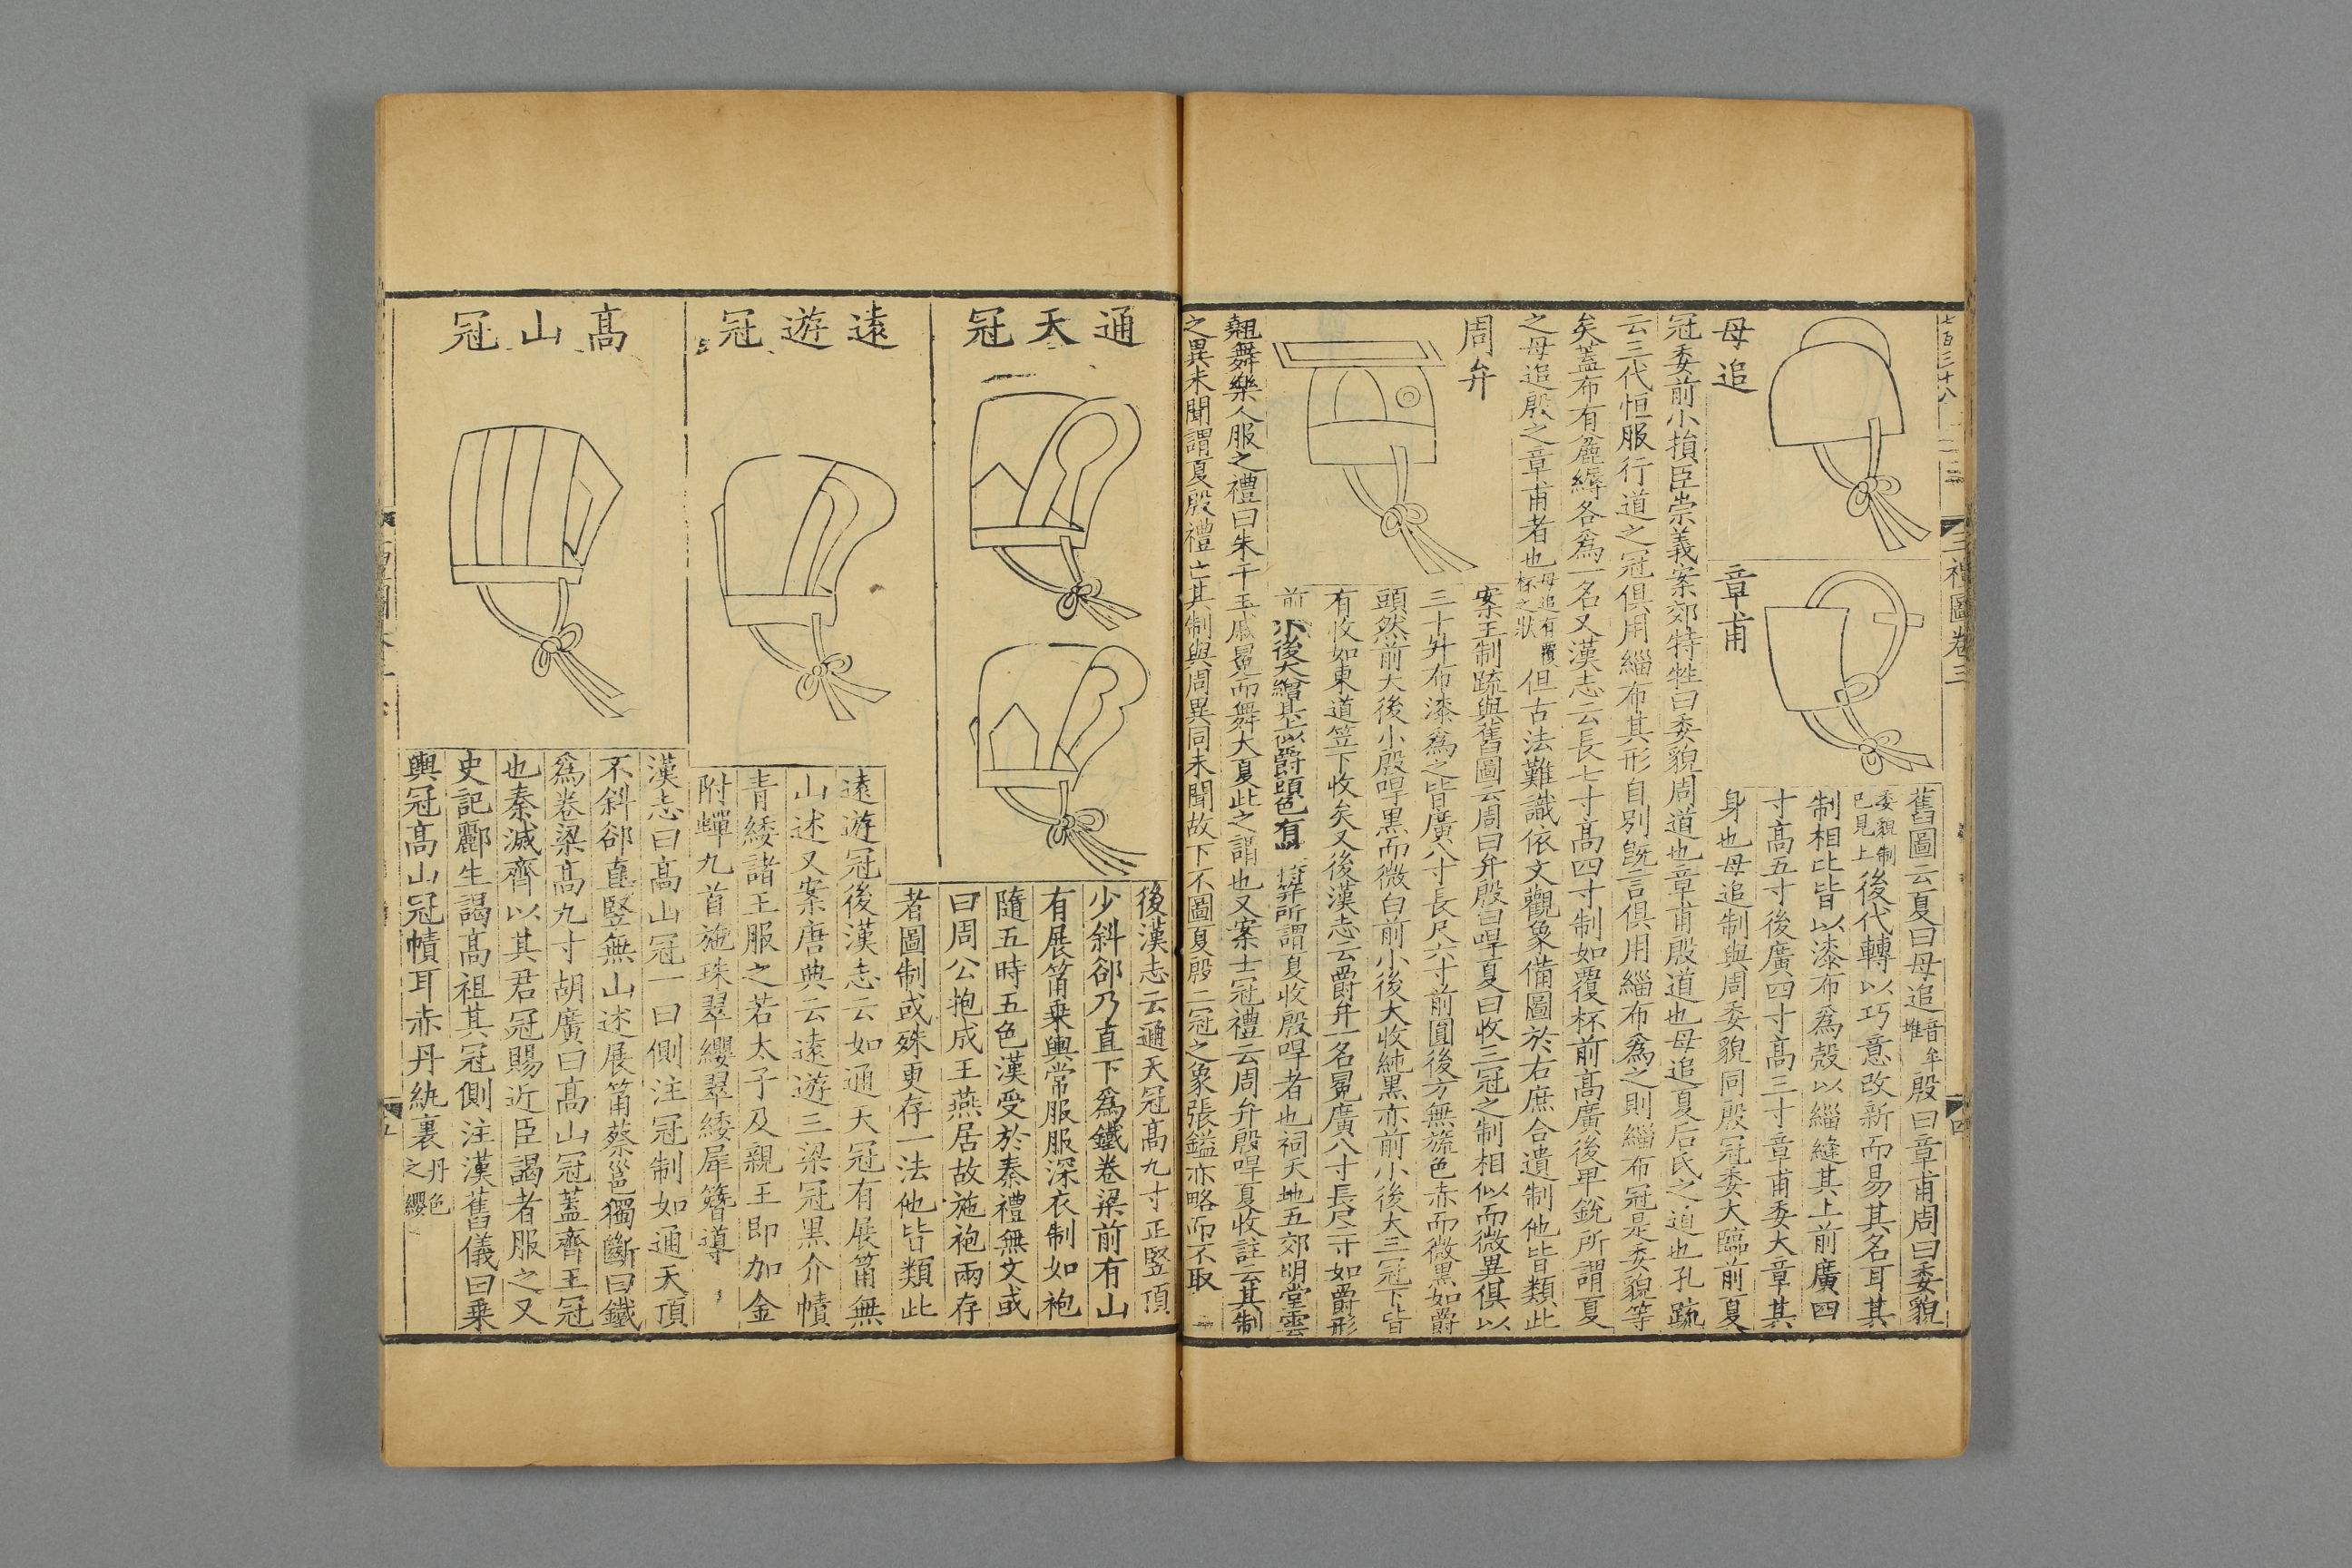 七百三十八
三禮圖卷三
四
母追
章甫
舊圖云夏曰母追音牟堆殷曰章甫周曰委貌
委貌制已見上後代轉以巧意改新而易其名耳其
制相比皆以漆布爲殼以緇縫其上前廣四
寸高五寸後廣四寸高三寸章甫委大章其
身也母追制與周委貌同殷冠委大臨前夏
冠委前小損臣崇義案郊特牲曰委貌周道也章甫殷道也母追夏后氏之道也孔疏
云三代恒服行道之冠俱用緇布其形自别旣言俱用緇布爲之則緇布冠是委貌等
矣蓋布有麄縟各爲一名又漢志云長七寸髙四寸制如覆杯前髙廣後卑銳所謂夏
之母追殷之章甫者也母追有覆杯之狀但古法難識依文觀象備圖於右庶合遺制他皆類此
周弁
案王制疏與舊圖云周曰弁殷曰冔夏曰收三冠之制相似而微異俱以
三十升布漆爲之皆廣八寸長尺六寸前圓後方無旒色赤而微黑如爵
頭然前大後小殷冔黑而微白前小後大收純黑亦前小後大三冠下皆
有收如東道笠下收矣又後漢志云爵弁一名冕廣八寸長尺二寸如爵形
前小後大繒其上似爵頭色有收持笄所謂夏收殷冔者也祠天地五郊明堂雲
翹舞樂人服之禮曰朱干玉戚冕而舞大夏此之謂也又案士冠禮云周弁殷冔夏收註云其制
之異未聞謂夏殷禮亡其制與周異同未聞故下不圖夏殷二冠之象張鎰亦略而不取
通天冠
後漢志云通天冠髙九寸正竪頂
少斜郤乃直下爲鐵卷梁前有山
有展筩乗輿常服服深衣制如袍
隨五時五色漢受於秦禮無文或
曰周公抱成王燕居故施袍兩存
者圖制或殊更存一法他皆類此
遠遊冠
遠遊冠後漢志云如通天冠有展筩無
山述又案唐典云遠遊三梁冠黑介幘
青緌諸王服之若太子及親王即加金
附蟬九首施珠翠纓翠緌犀簪導
髙山冠
漢志曰髙山冠一曰側注冠制如通天頂
不斜郤直竪無山述展筩蔡邕獨斷曰鐵
爲卷梁髙九寸胡廣曰髙山冠蓋齊王冠
也秦滅齊以其君冠賜近臣謁者服之又
史記酈生謁髙祖其冠側注漢舊儀曰乗
輿冠髙山冠幘耳赤丹紈裏丹色之纓